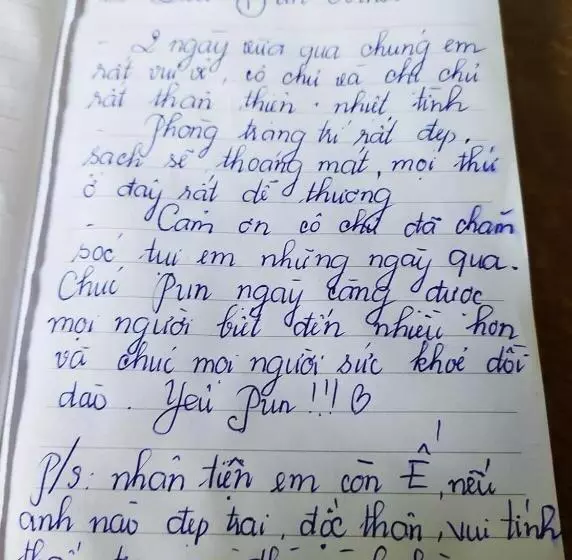 - 2 ngày vừa qua chúng em
rất vui vẻ, cô chú và chủ
rất thân thiện. nhiệt tình
- Phòng trang trí rất đẹp,
sạch sẽ thoáng mát, mọi thứ
ở đây rất dễ thương
- Cảm ơn cô chú đã chăm
sóc tụi em những ngày qua.
Chúc Pun ngày càng được
mọi người biết đến nhiều hơn
và chúc mọi người sức khoẻ dồi
dào. Yêu Pun!!!
P/s: nhân tiện em còn Ế, nếu
anh nào đẹp trai, độc thân, vui tính